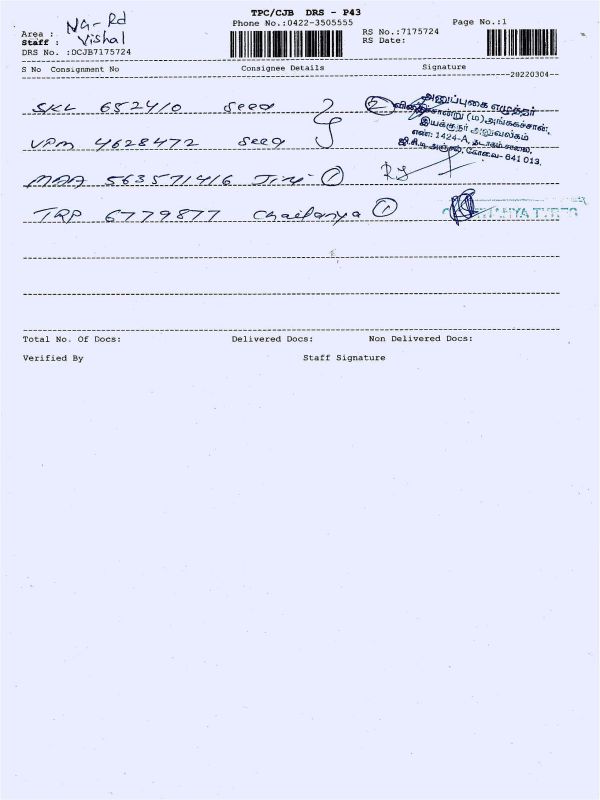 TPC/CJB DRS - P43
Phone No.:0422-3505555
Page No.:1
Area : NG-Rd
Staff : Vishal
RS No.:7175724
RS Date:
DRS No. :DCJB7175724
S No Consignment No Consignee Details Signature
20220304
SKL 652410 Seed 2
VPM 4628472 Seed
அனுப்புகை எழுத்தர்
விதைச்சான்று (ம) அங்ககச்சான்,
இயக்குநர் அலுவலகம்
எண்: 1424-A, தடாகம் சாலை,
ஜி.சி.டி அஞ்சல், கோவை- 641 013.
MAA 563571416 1
TRP 6779877 Chaitanya 1
Total No. Of Docs: Delivered Docs: Non Delivered Docs:
Verified By Staff Signature